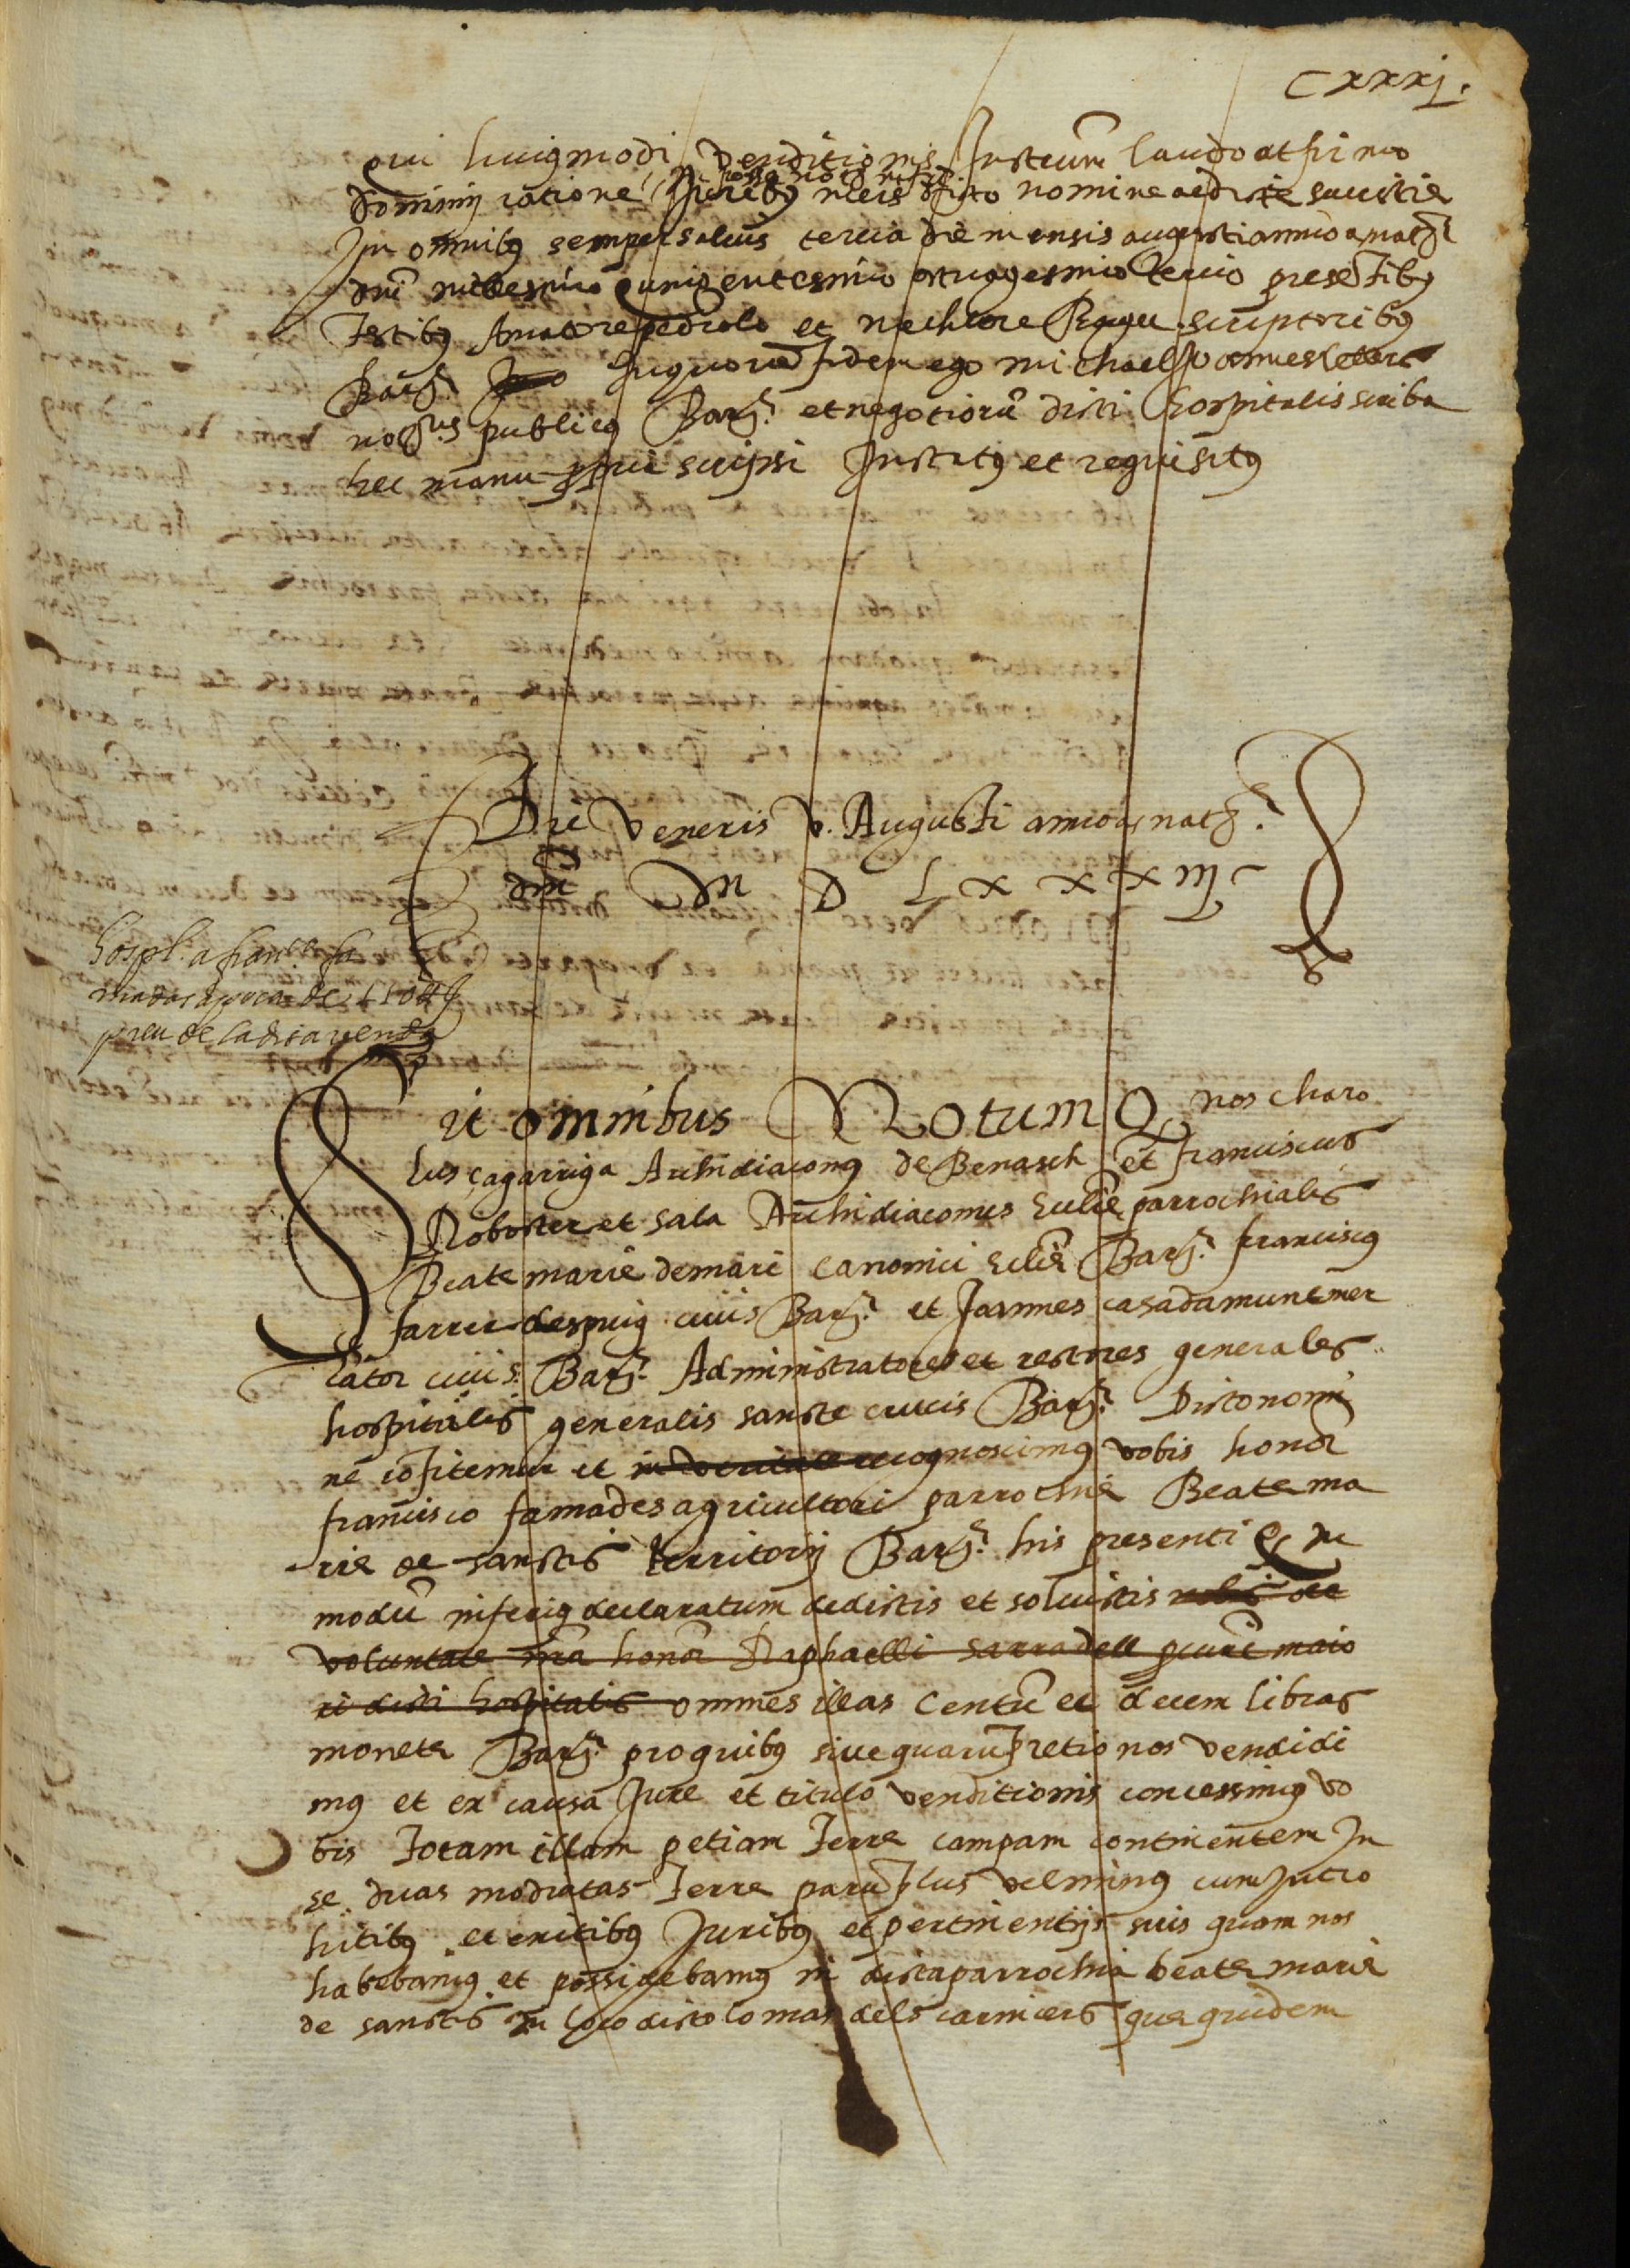 Cxxxj.
qui huiusmodi venditionis Instrum laudo et firmo
dominij ratione Juribus meis dicto nomine ac dicte sacristie
In omnibus semper salvis tercia die mensis augusti anno a nat
dni millesimo quingentesimo octuagesimo tercio presentibus
Testibus Amatore pedrolo et Melchiore scriptoribus
Bar In quorum fidem ego Michael Joannes
nots publicus Bar et negotioru dicti hospitalis scriba
hec manu ppria scripsi Instatus et requisitus
Die veneris v. Augusti anno a nat
dni M D L x x x iij
hospl. a franc fa
mades apoca de 110 ll
preu de la dita venda
Sit omnibus Notum Q nos Charo
lus çagarriga Archidiaconus de Benasch et franciscus
Roboster et sala Archidiaconus Ecclie parrochialis
Beate marie de mari canonici Ecclie Bar franciscus
farrer despuig civis Bar et Joannes casadamunt mer
cator civis Bar Administratores et rectores generales
hospitalis generalis sancte crucis Bar Dicto nomi
ne cofitemur et in veritate recognoscimus vobis honor
francisco famades agricultori parrochie Beate ma
rie de sanctis territorij Bar his presenti Q in
modu inferius declaratum dedistis et solvistis nobis de
voluntate nra honor Raphaelli sarradell pcure maio
ri dicti hospitalis omnes illas Centu et decem libras
monete Bar pro quibus sive quaru pretio nos vendidi
mus et ex causa Jure et titulo venditionis concessimus vo
bis Totam illam petiam Terre campam continentem In
se duas modiatas Terre paru plus vel minus cum Intro
hitibus et exitibus Juribus et pertinentijs suis quam nos
habebamus et possidebamus in dicta parrochia beate marie
de sanctis In loco dicto lo mas dels carnicers que quidem